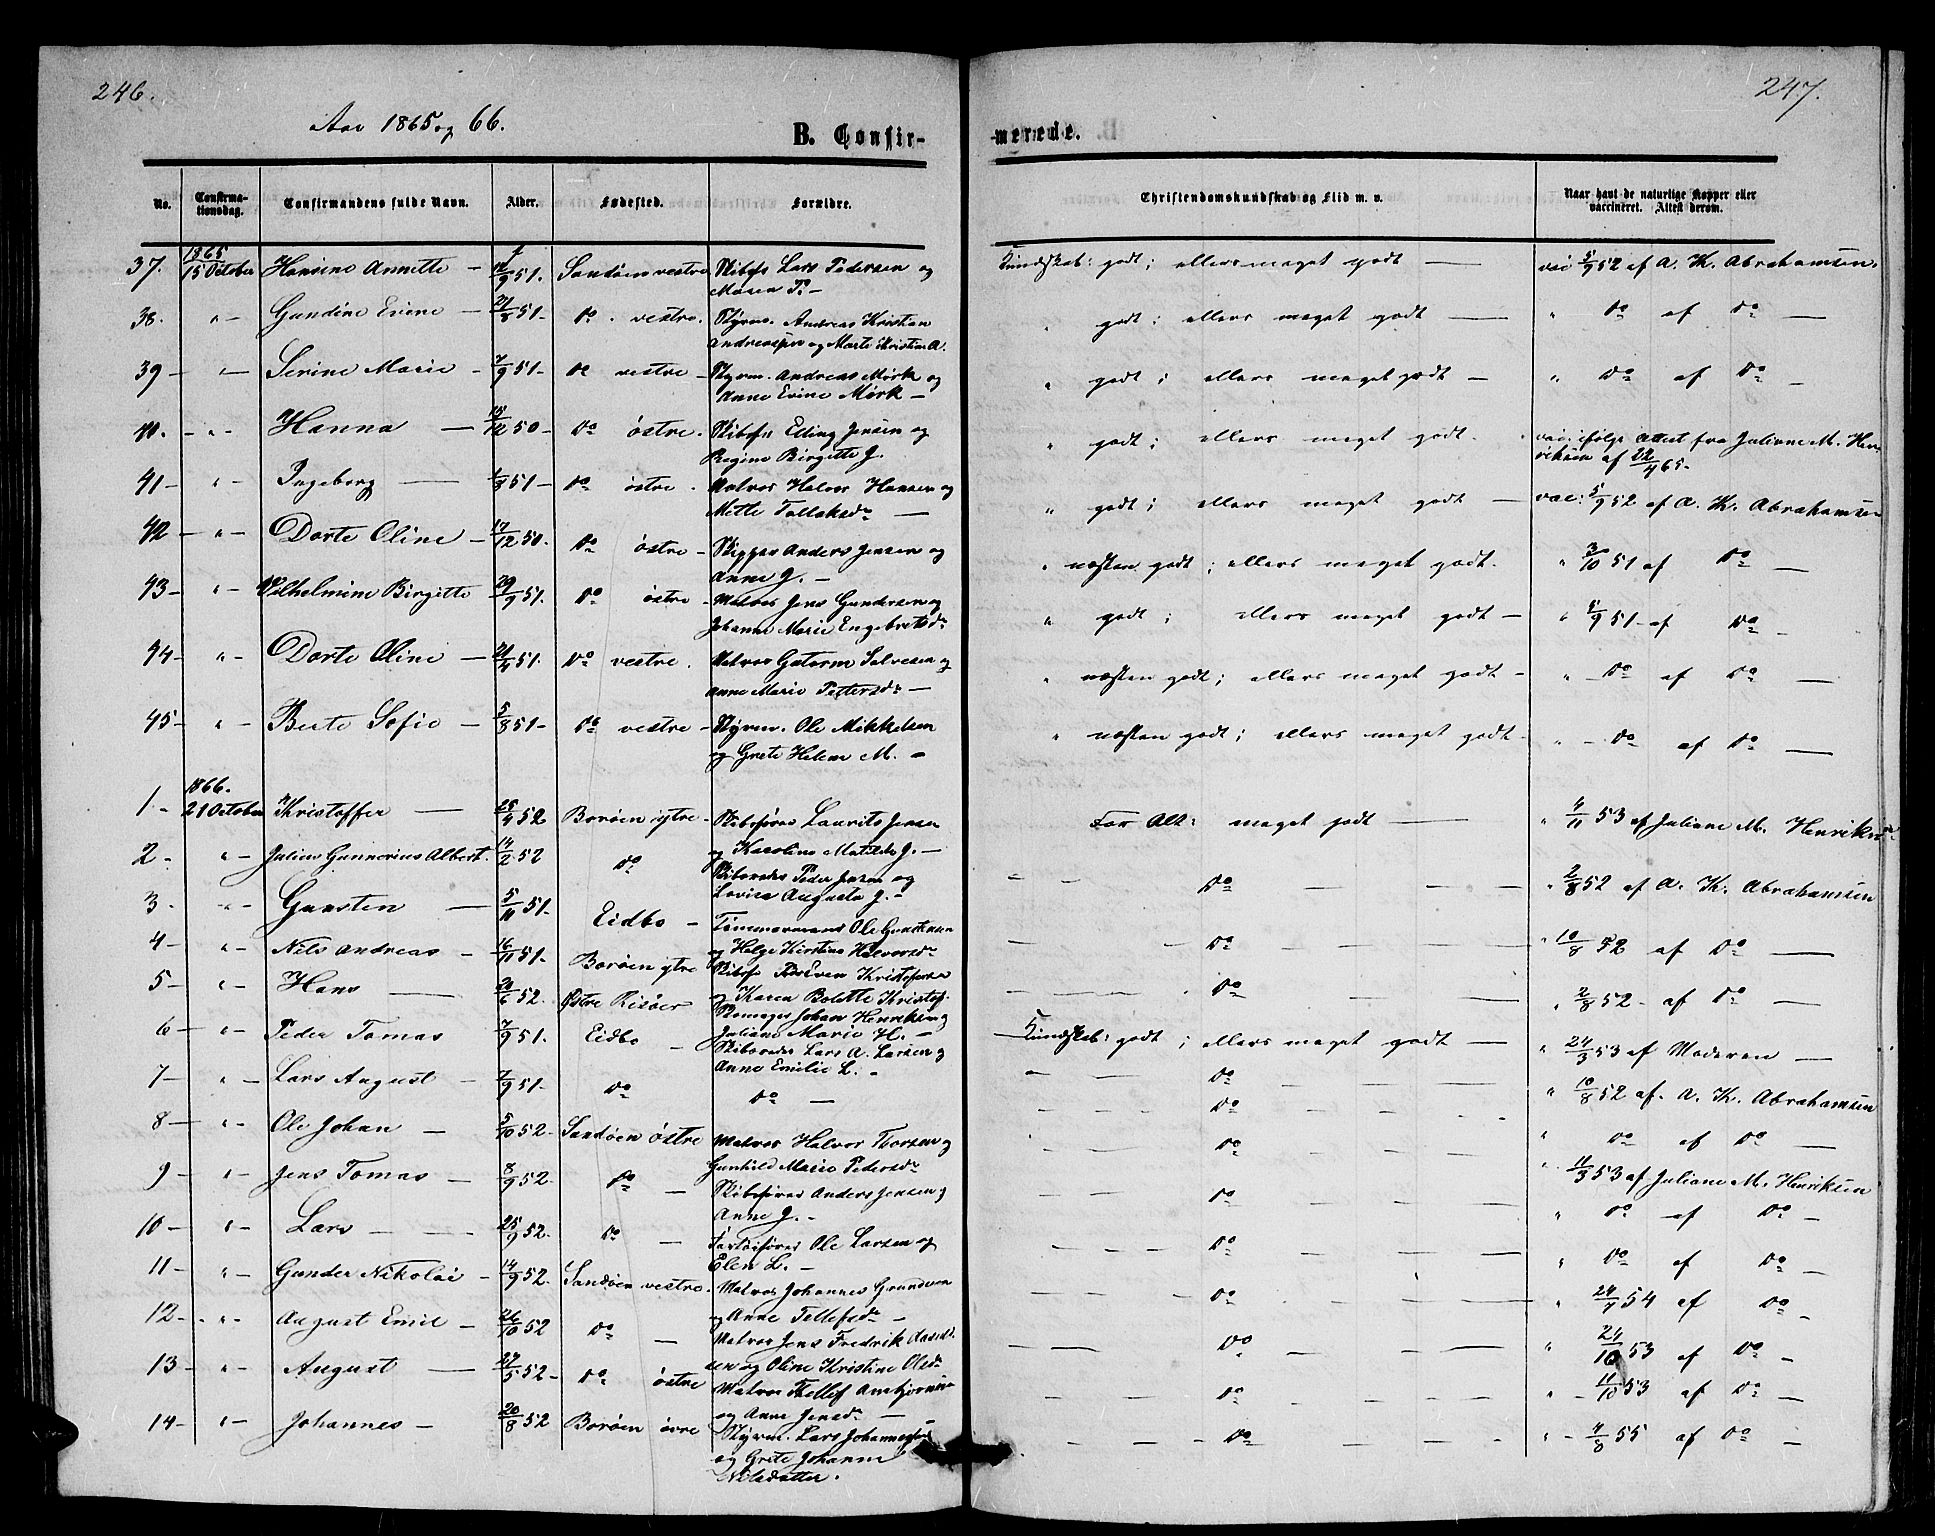 246.
247.
Aar 1865 og 66.
B. Confir-
merede.
No.
Confirma-
tionsdag.
Confirmandens fulde Navn.
Alder.
Fødested.
Forældre.
Christendomskundskab og Flid m. v.
Naar havt de naturlige Kopper eller
vaccineret. Attest derom.
37. 1865 15 October Hansine Annette – 12/9 51. Sandøen vestre Skibsf. Lars Pedersen og
Maren P. –
Kundskab: godt; ellers meget godt — vac 5/9 52 af A. K. Abrahamsen.
38. " – Gundine Evine – 21/8 51– Do. vestre. Styrm. Andreas Kristian
Andreassen og Marte Kristine A.
" godt; ellers meget godt — " Do af Do —
39 – " – Serine Marie – 7/9 51– Do vestre – Styrm. Andreas Mørk og
Anne Evine Mørk –
" godt; ellers meget godt – " Do af Do –
40. – " – Hanna – 15/12 50– Do østre. Skibsfr Elling Jensen og
Regine Birgitte J.
" godt; ellers meget godt. vac. ifølge Attest fra Juliane M. Hen-
riksen af 22/4 65–
41 – " – Ingeborg — 51– Do østre. Matros Halvor Hansen og
Mette Tallaksdr —
" godt; ellers meget godt – vac: 5/9 52 af A. K. Abrahamsen
42 – " – Dorte Oline – 17/12 50. Do østre – Skipper Anders Jensen og
Anne J. –
" næsten godt; ellers meget godt. " 3/10 51 af Do —
43 – " – Vilhelmine Birgitte 29/9 51. Do østre – Matros Jens Gundersen og
Johanne Marie Engebretsdr.
" godt; ellers meget godt – 51 – af Do –
44 – " – Dorte Oline – 51. Do vestre. Matros Gutorm Salvesen og
Anne Marie Pettersdr –
" næsten godt; ellers meget godt – " – Do af Do —
45 – " – Berte Sofie – 5/8 51– Do vestre – Styrm. Ole Mikkelsen
og Grete Helene M. –
" næsten godt; ellers meget godt – " – Do af Do —
1. – 1866. 21 October Kristoffer — 25/4 52 Borøen ytre – Skibsfører Laurits Jensen
og Karoline Matilde J. –
For Alt: meget godt — " 4/11 53 af Juliane M. Henriksen
2 – " – Julius Gunnerius Albert. 14/2 52 Do Skibsreder Peder Jensen og
Lovise Augusta J. –
– – Do – – – " 2/8 52 af A. K. Abrahamsen
3 – " – Gunsten — 5/11 51. Eidbo – Tømmermand Ole Gunstensen
og Helge Kirstine Halvorsdr
– – Do – – – " 10/8 52 af Do –
4 – " – Nils Andreas – 16/11 51– Borøen ytre Skibsf. Even Kristofersen
og Karen Bolette Kristof.
– – Do – – " 2/8 52 – af Do —
5 – " – Hans — 20/6 52. Østre Risøer Johan Henriksen og
Juliane Marie H. –
Kundskab: godt; ellers meget godt — " 24/3 53 af Moderen —
6 – " – Peder Tomas 7/9 51. Eidbo – Skibsreder Lars A. Larsen og
Anne Emilie L. –
– – Do – – " 10/8 52 af. A. K. Abrahamsen
7 – " – Lars August – 7/9 51– Do Do —
– – Do – – " Do af Do —
8 – " – Ole Johan – 5/10 52– Sandøen østre Matros Halvor Thorsen og
Gunhild Marie Pedersdr
– – Do – – " 11/3 53 af Juliane M. Henriksen
9 – " – Jens Tomas – 8/9 52. Do – Skibsfører Anders Jensen og
Anne J. –
– – Do – – " Do af Do –
10 – " – Lars — 25/9 52. Do – Fartøifører Ole Larsen og
Elen L. –
– – Do – – " Do af Do –
11 – " – Gunder Nikolai – 14/9 52. Sandøen vestre. Matros Johannes Gundersen
og Anne Tellefsdr –
– – Do – – " 54 af Do –
12 – " – August Emil – 26/10 52 Do – Matros Jens Fredrik
sen og Oline Kristine Olsdr
– – Do – – " 24/10 53 af Do –
13 – " – August — 27/5 52– Do østre Matros Thellef
og Anne Jensdr —
– – Do – – " – 11/10 53 af Do –
14 – " – Johannes – 20/8 52 Borøen øvre Styrm. Lars
og Grete Johanne
Nilsdatter.
– – Do – – " – 4/8 55 af Do –